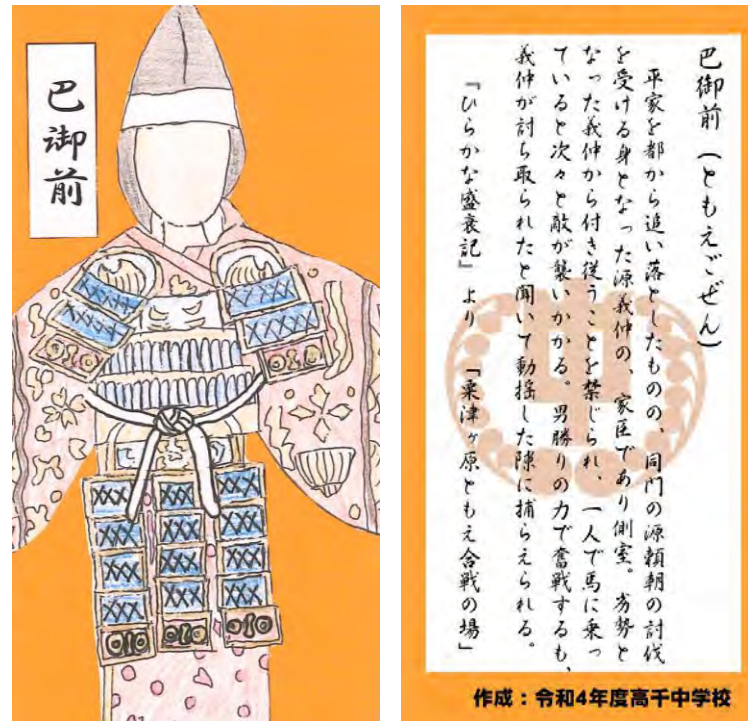 巴御前
巴御前（ともえごぜん）
平家を都から追い落としたものの、同門の源頼朝の討伐
を受ける身となった源義仲の、家臣であり側室。劣勢と
なった義仲から付き従うことを禁じられ、一人で馬に乗っ
ていると次々と敵が襲いかかる。男勝りの力で奮戦するも、
義仲が討ち取られたと聞いて動揺した隙に捕らえられる。
『ひらかな盛衰記』より　「粟津ヶ原ともえ合戦の場」
作成：令和4年度高千中学校